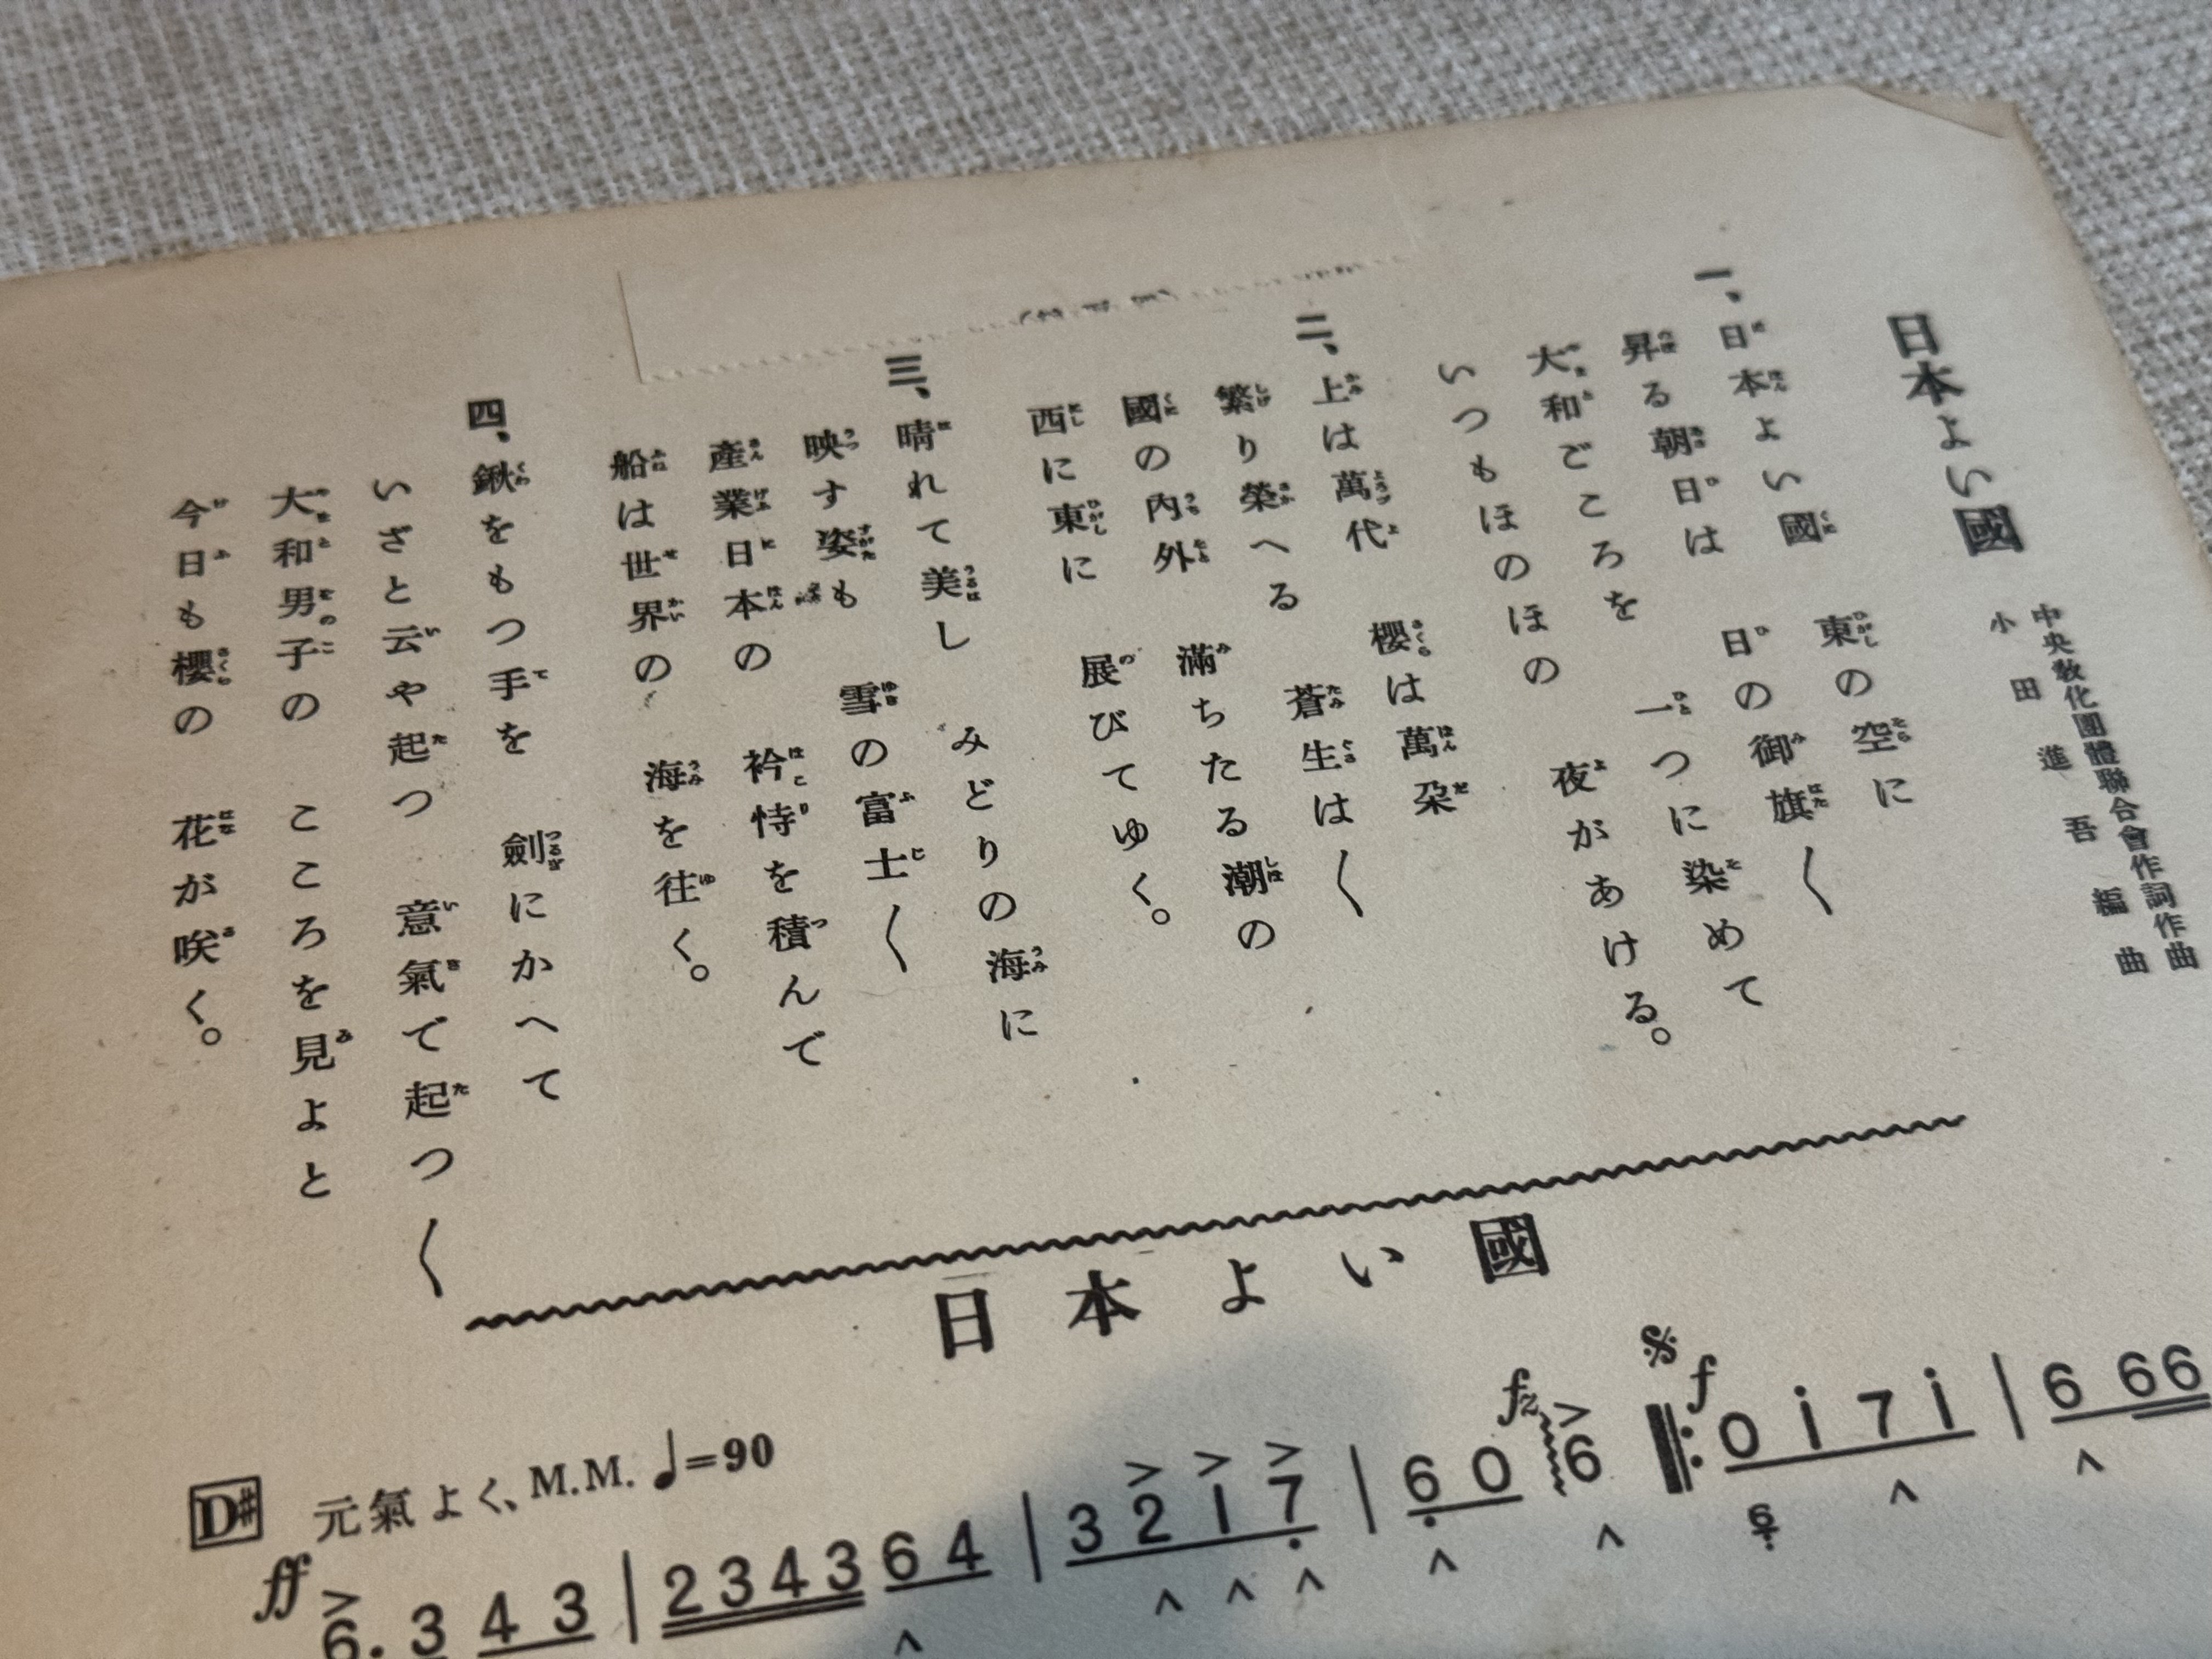 日本よい國
中央敎化團體聯合會作詞作曲
小田進吾編曲
一、日本よい國　東の空に
昇る朝日は　日の御旗〱
大和ごころを　一つに染めて
いつもほのほの　夜があける。
二、上は萬代　櫻は萬朶
繁り榮へる　蒼生は〱
國の內外　滿ちたる潮の
西に東に　展びてゆく。
三、晴れて美し　みどりの海に
映す姿も　雪の富士〱
產業日本の　衿恃を積んで
船は世界の　海を往く。
四、鍬をもつ手を　劍にかへて
いざと云や起つ　意氣で起つ〱
大和男子の　こころを見よと
今日も櫻の　花が咲く。
日本よい國
D♯ 元氣よく、M.M. ♩=90
ff f𝆎 𝄋 f
6. 3 4 3 | 2343 6 4 | 3 2 1 7 | 6 0 6 0 i 7 i | 6 66
6